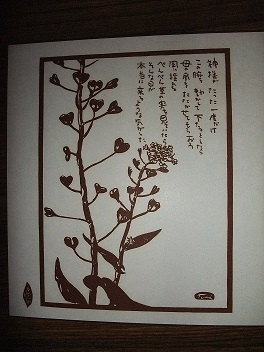 神様がたった一度だけ
この腕を動かして下さるとしたら
母の肩をたたかせてもらおう
風に揺れる
ぺんぺん草の実を見ていたら
そんな日が
本当に来るような気がした